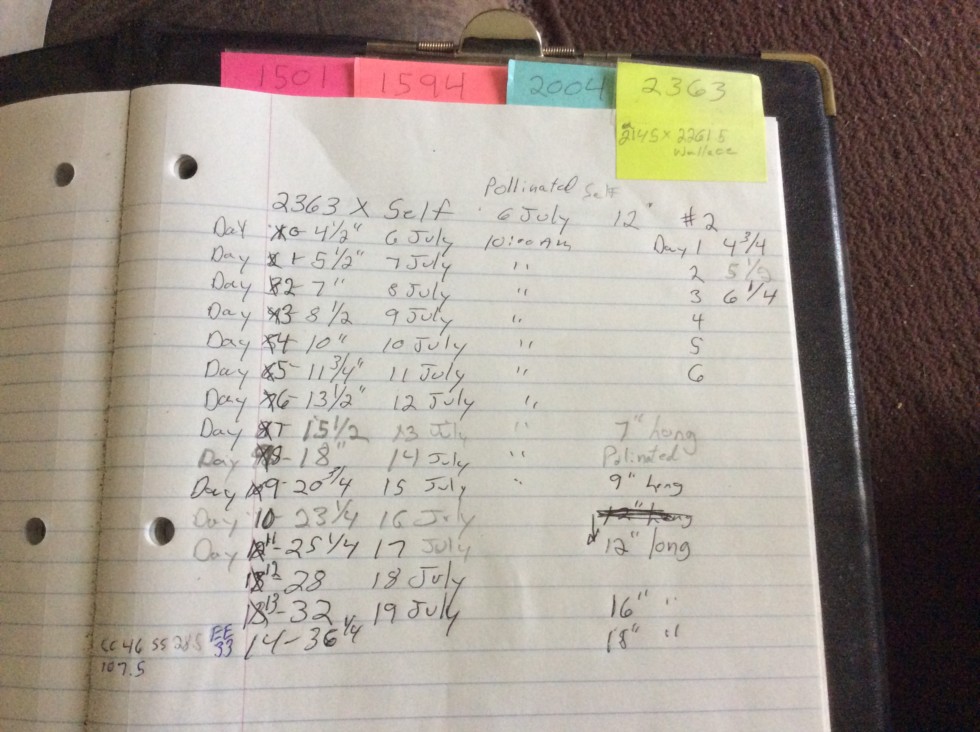 1501 1594 2004 2363
2145 x 2261.5
Wallace
Pollinated Self
2363 X Self 6 July 12" #2
Day 0- 4 1/2" 6 July 10:00 AM Day 1 4 3/4
Day 1- 5 1/2" 7 July " 2 5 1/2
Day 2- 7" 8 July " 3 6 1/4
Day 3- 8 1/2 9 July " 4
Day 4- 10" 10 July " 5
Day 5- 11 3/4" 11 July " 6
Day 6- 13 1/2" 12 July "
Day 7 15 1/2 13 July " 7" long
Day 8- 18" 14 July " Polinated
Day 9- 20 3/4 15 July " 9" long
Day 10- 23 1/4 16 July
Day 11- 25 1/4 17 July 12" long
12- 28 18 July
13- 32 19 July 16" "
CC 46 SS 28.5 EE 33 14- 36 1/4 18" "
107.5